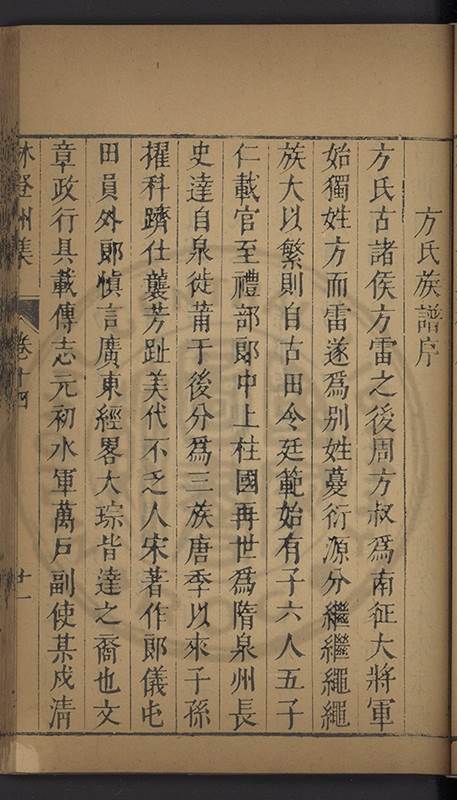 方氏族譜序
方氏古諸侯方雷之後周方叔爲南征大將軍
始獨姓方而雷遂爲别姓蔓衍源分繼繼繩繩
族大以繁則自古田令廷範始有子六人五子
仁載官至禮部郎中上柱國再世爲隋泉州長
史達自泉徙莆于後分爲三族唐季以來子孫
擢科躋仕襲芳趾美代不乏人宋著作郎儀屯
田員外郎慎言廣東經畧大琮皆達之裔也文
章政行具載傳志元初水軍萬戸副使某戍清
林登州集 卷十四 十一